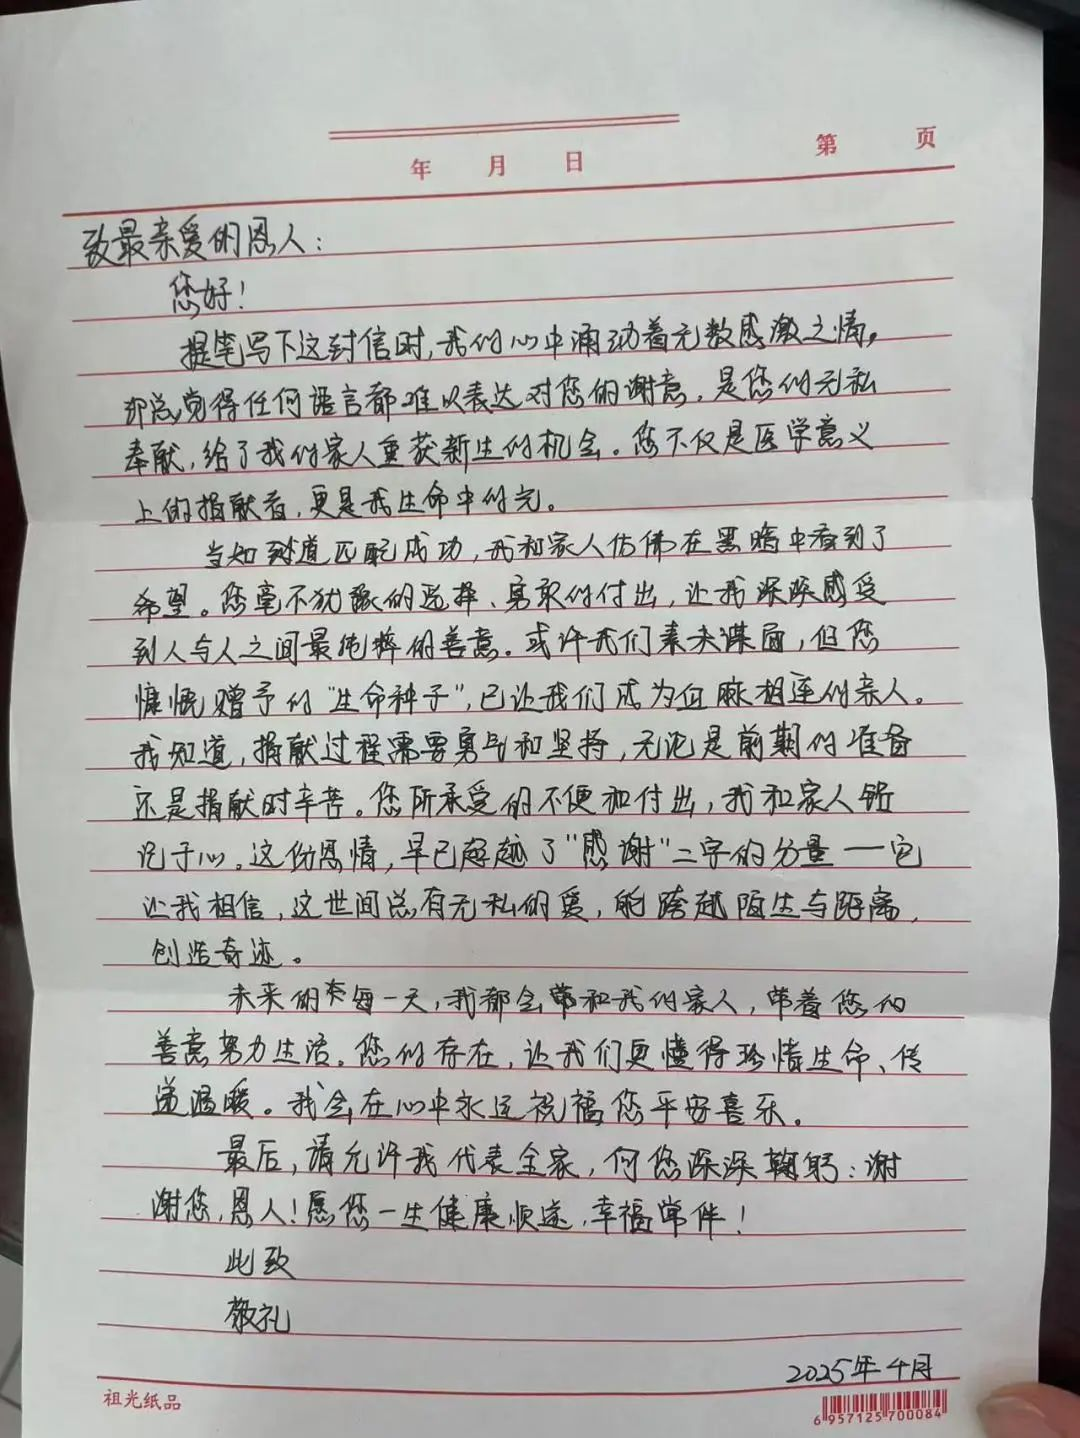 年 月 日 第 页
致最亲爱的恩人：
您好！
提笔写下这封信时，我的心中涌动着无数感激之情，
却总觉得任何语言都难以表达对您的谢意，是您的无私
奉献，给了我的家人重获新生的机会。您不仅是医学意义
上的捐献者，更是我生命中的光。
当知道匹配成功，我和家人仿佛在黑暗中看到了
希望。您毫不犹豫的选择、勇敢的付出，让我深深感受
到人与人之间最纯粹的善意。或许我们素未谋面，但您
慷慨赠予的“生命种子”，已让我们成为血脉相连的亲人。
我知道，捐献过程需要勇气和坚持，无论是前期的准备
还是捐献时辛苦。您所承受的不便和付出，我和家人铭
记于心。这份恩情，早已超越了“感谢”二字的分量——它
让我相信，这世间总有无私的爱，能跨越陌生与距离，
创造奇迹。
未来的每一天，我都会和我的家人，带着您的
善意努力生活。您的存在，让我们更懂得珍惜生命、传
递温暖。我会在心中永远祝福您平安喜乐。
最后，请允许我代表全家，向您深深鞠躬：谢
谢您，恩人！愿您一生健康顺遂，幸福常伴！
此致
敬礼
2025年4月
祖光纸品
6 957125 700084